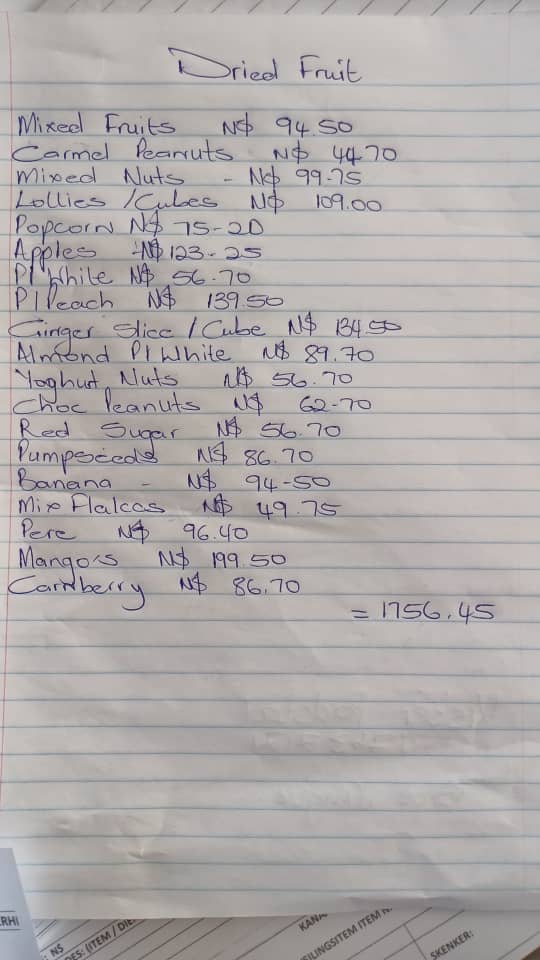 Dried Fruit
Mixed Fruits N$ 94.50
Carmel Pearnuts N$ 44.70
Mixed Nuts - N$ 99-75
Lollies / Cubes N$ 109.00
Popcorn N$ 75-20
Apples -N$ 123-25
P/ White N$ 56.70
P/Peach N$ 139.50
Ginger Slice / Cube N$ 134.50
Almond P/ White N$ 89.70
Yoghut Nuts N$ 56.70
Choc Peanuts N$ 62-70
Red Sugar N$ 56.70
Pumpseeds N$ 86.70
Banana - N$ 94-50
Mix Flakes N$ 49.75
Pere N$ 96.40
Mango's N$ 199.50
Carnberry N$ 86.70
= 1756.45
ERHI
: N$
DES: (ITEM / DIE
EILINGSITEM ITEM
SKENKER: